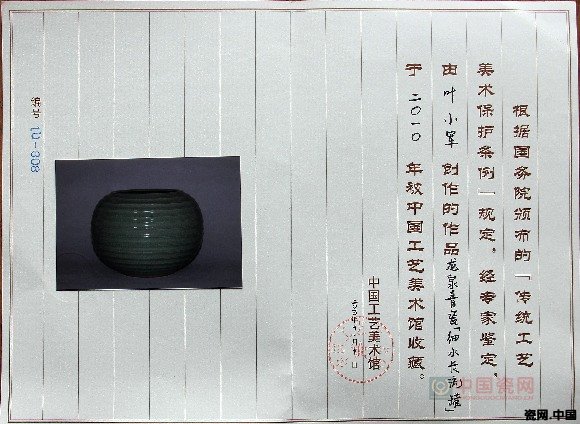 根据国务院颁布的「传统工艺
美术保护条例」规定，经专家鉴定，
由叶小军创作的作品龙泉青瓷「细水长流罐」
于二〇一〇年被中国工艺美术馆收藏。
中国工艺美术馆
编号 10-008
中国瓷网
瓷网.中国